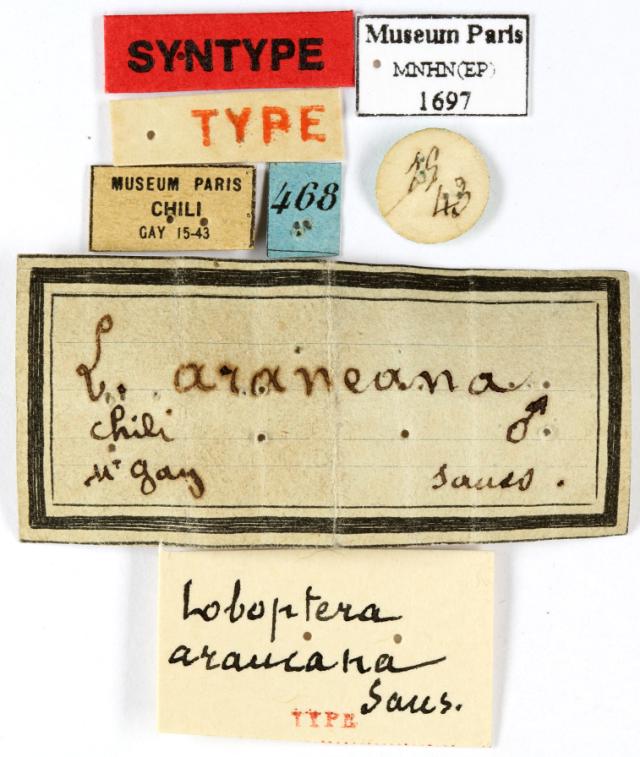 SYNTYPE
Museum Paris
MNHN(EP)
1697
TYPE
MUSEUM PARIS
CHILI
GAY 15-43
468
15
43
L. araneana
chili ♂
Mr gay sauss.
Loboptera
araucana
Saus.
TYPE